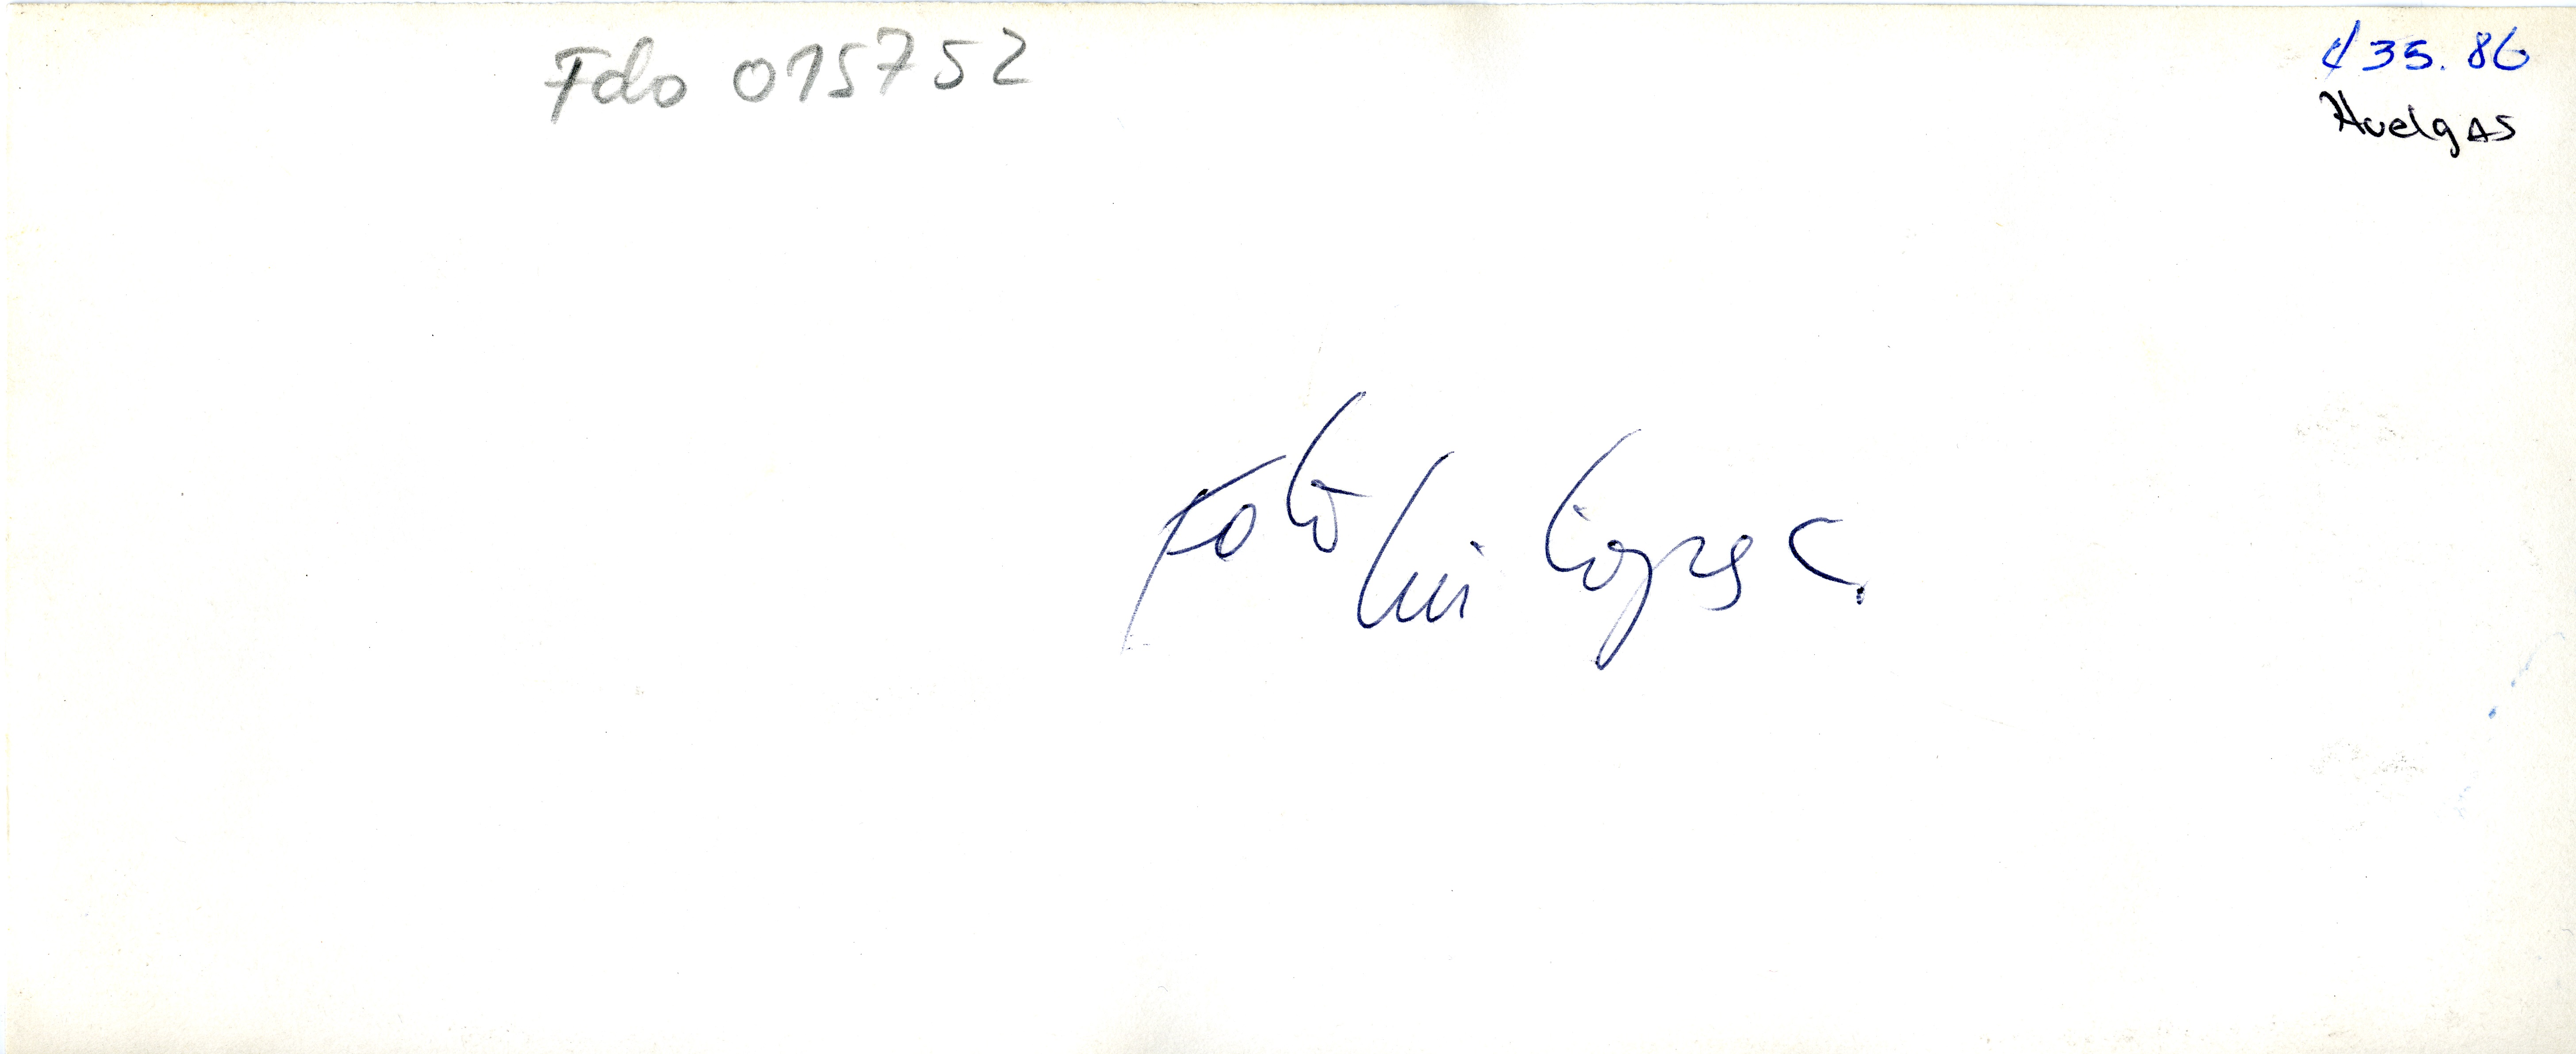 Fdo 015752
¢35.86
Huelgas
Foto Luis López C.